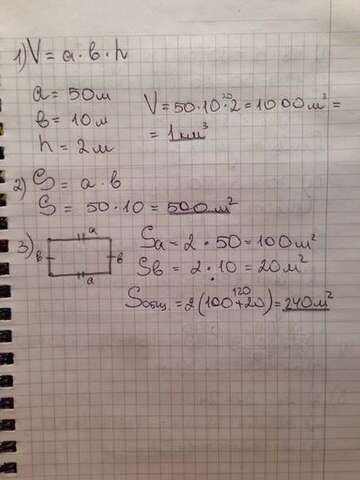 1) V = a · b · h
a = 50 м
b = 10 м
h = 2 м
V = 50 · 10 · 2 = 1000 м³ =
20
= 1 км³
2) S = a · b
S = 50 · 10 = 500 м²
3)
a
b
b
a
Sa = 2 · 50 = 100 м²
Sb = 2 · 10 = 20 м²
Sобщ = 2 (100 + 20) = 240 м²
120